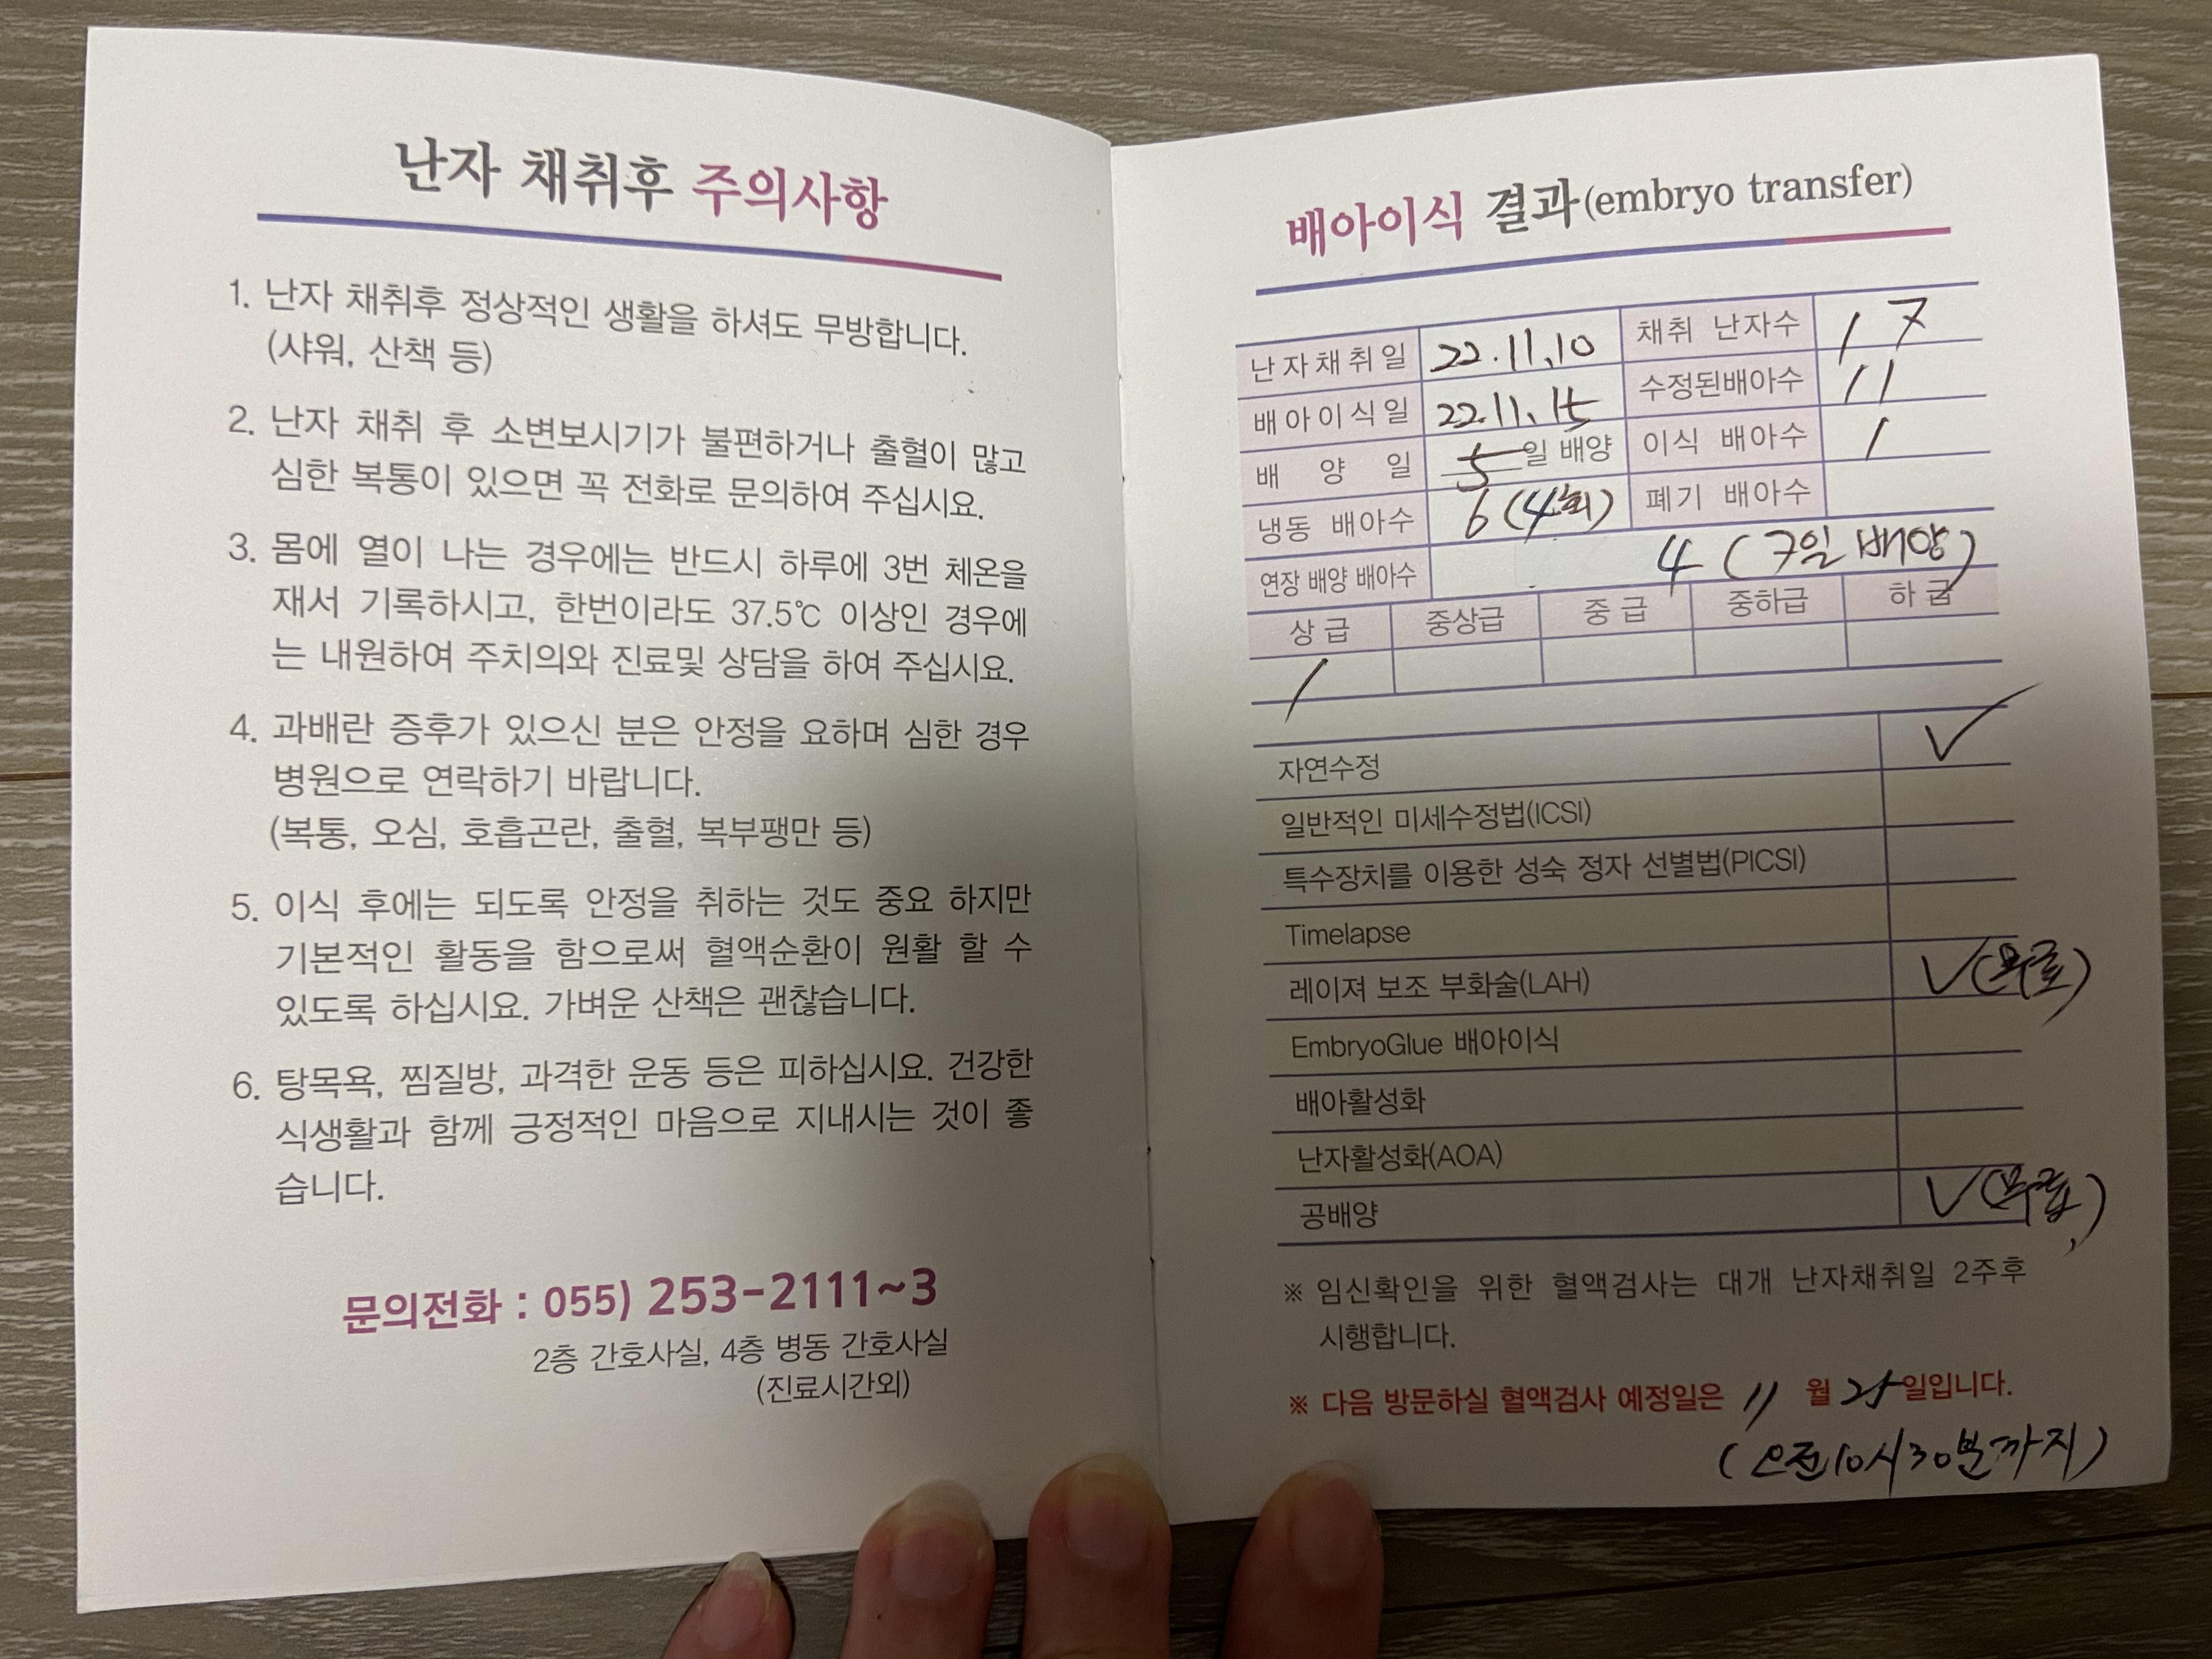 난자 채취후 주의사항
1. 난자 채취후 정상적인 생활을 하셔도 무방합니다.
(샤워, 산책 등)
2. 난자 채취 후 소변보시기가 불편하거나 출혈이 많고
심한 복통이 있으면 꼭 전화로 문의하여 주십시요.
3. 몸에 열이 나는 경우에는 반드시 하루에 3번 체온을
재서 기록하시고, 한번이라도 37.5℃ 이상인 경우에
는 내원하여 주치의와 진료및 상담을 하여 주십시요.
4. 과배란 증후가 있으신 분은 안정을 요하며 심한 경우
병원으로 연락하기 바랍니다.
(복통, 오심, 호흡곤란, 출혈, 복부팽만 등)
5. 이식 후에는 되도록 안정을 취하는 것도 중요 하지만
기본적인 활동을 함으로써 혈액순환이 원활 할 수
있도록 하십시요. 가벼운 산책은 괜찮습니다.
6. 탕목욕, 찜질방, 과격한 운동 등은 피하십시요. 건강한
식생활과 함께 긍정적인 마음으로 지내시는 것이 좋
습니다.
문의전화 : 055) 253-2111~3
2층 간호사실, 4층 병동 간호사실
(진료시간외)
배아이식 결과(embryo transfer)
난자채취일 22.11.10 채취 난자수 17
배아이식일 22.11.15 수정된배아수 11
배양일 5일 배양 이식 배아수 1
냉동 배아수 6 (4회) 폐기 배아수
연장 배양 배아수 4 (7일 배양)
상급 중상급 중급 중하급 하급
1
자연수정 ✓
일반적인 미세수정법(ICSI)
특수장치를 이용한 성숙 정자 선별법(PICSI)
Timelapse
레이져 보조 부화술(LAH) ✓(무료)
EmbryoGlue 배아이식
배아활성화
난자활성화(AOA)
공배양 ✓(무료)
※ 임신확인을 위한 혈액검사는 대개 난자채취일 2주후
시행합니다.
※ 다음 방문하실 혈액검사 예정일은 11 월 25일입니다.
(오전10시30분까지)